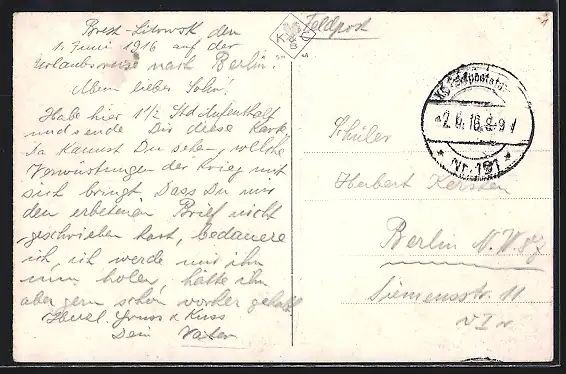 Brest-Litowsk den
1. Juni 1916 auf der
Urlaubsreise nach Berlin.
Mein lieber Sohn!
Habe hier 1 1/2 Std Aufenthalt
und sende Dir diese Karte,
Da kannst Du sehen, welche
Verwüstungen der Krieg mit
sich bringt. Dass Du mir
den erbetenen Brief nicht
geschrieben hast, bedauere
ich, ich werde mir ihn
nun holen, hätte ihn
aber gern schon vorher gehabt
Herzl. Gruss u Kuss
Dein Vater
Feldpost
K
2.6.16.8-9V
* Nr. 191 *
Schüler
Herbert Kersten
Berlin N.W. 87
Siemensstr. 11